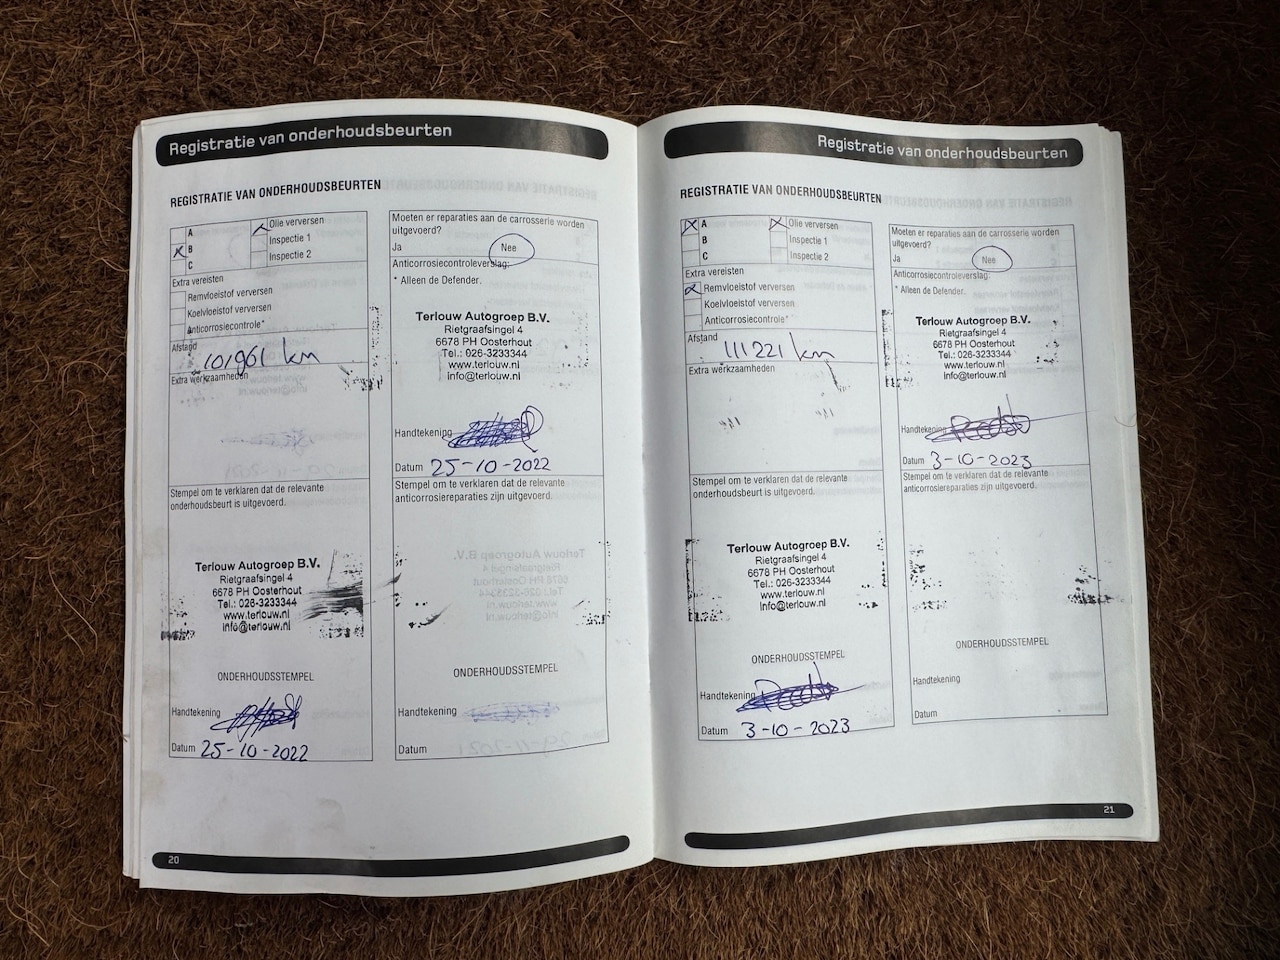 Registratie van onderhoudsbeurten
REGISTRATIE VAN ONDERHOUDSBEURTEN
A
B
C
Olie verversen
Inspectie 1
Inspectie 2
Extra vereisten
Remvloeistof verversen
Koelvloeistof verversen
Anticorrosiecontrole*
Afstand 101961 km
Extra werkzaamheden
Stempel om te verklaren dat de relevante
onderhoudsbeurt is uitgevoerd.
Terlouw Autogroep B.V.
Rietgraafsingel 4
6678 PH Oosterhout
Tel.: 026-3233344
www.terlouw.nl
info@terlouw.nl
ONDERHOUDSSTEMPEL
Handtekening
Datum 25-10-2022
Moeten er reparaties aan de carrosserie worden
uitgevoerd?
Ja Nee
Anticorrosiecontroleverslag:
* Alleen de Defender.
Terlouw Autogroep B.V.
Rietgraafsingel 4
6678 PH Oosterhout
Tel.: 026-3233344
www.terlouw.nl
info@terlouw.nl
Handtekening
Datum 25-10-2022
Stempel om te verklaren dat de relevante
anticorrosiereparaties zijn uitgevoerd.
ONDERHOUDSSTEMPEL
Handtekening
Datum
20
Registratie van onderhoudsbeurten
REGISTRATIE VAN ONDERHOUDSBEURTEN
A
B
C
Olie verversen
Inspectie 1
Inspectie 2
Extra vereisten
Remvloeistof verversen
Koelvloeistof verversen
Anticorrosiecontrole*
Afstand 111221 km
Extra werkzaamheden
Stempel om te verklaren dat de relevante
onderhoudsbeurt is uitgevoerd.
Terlouw Autogroep B.V.
Rietgraafsingel 4
6678 PH Oosterhout
Tel.: 026-3233344
www.terlouw.nl
info@terlouw.nl
ONDERHOUDSSTEMPEL
Handtekening
Datum 3-10-2023
Moeten er reparaties aan de carrosserie worden
uitgevoerd?
Ja Nee
Anticorrosiecontroleverslag:
* Alleen de Defender.
Terlouw Autogroep B.V.
Rietgraafsingel 4
6678 PH Oosterhout
Tel.: 026-3233344
www.terlouw.nl
info@terlouw.nl
Handtekening
Datum 3-10-2023
Stempel om te verklaren dat de relevante
anticorrosiereparaties zijn uitgevoerd.
ONDERHOUDSSTEMPEL
Handtekening
Datum
21